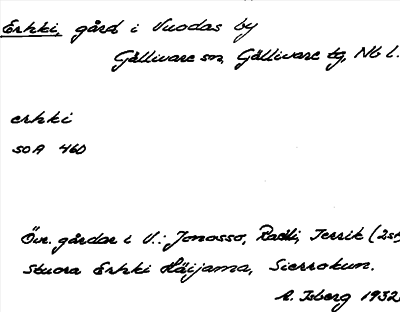 Erkki, gård i Vuodas by
Gällivare sn, Gällivare tg, Nb l.
erkki
SOA 460
Övr. gårdar i V.: Jonasso, Jerrik (2st
Stuora Erkki Häijama,
A. Isberg 1932